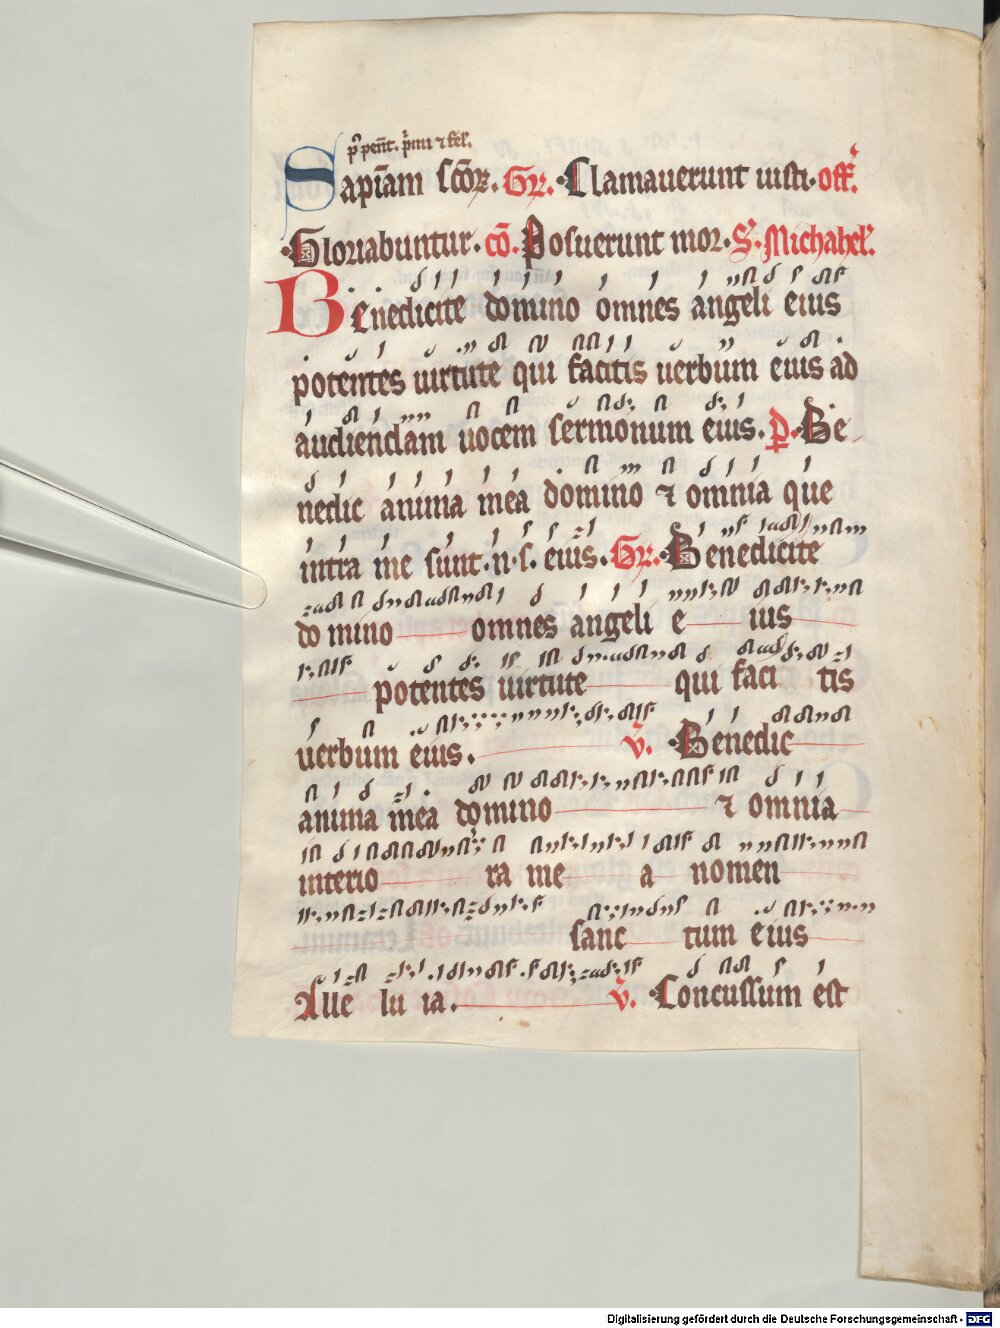 pꝰ penᷓt. pͥmi ⁊ fel'.
Sapiā̄m scō̄ꝝ. Gꝝ. Clamauerunt iusti. off̄.
Gloriabuntur. cō. Posuerunt mor. S. Michahel'.
Benedicite domino omnes angeli eius
potentes uirtute qui facitis uerbum eius ad
audiendam uocem sermonum eius. p̄. Be
nedic anima mea domino ⁊ omnia que
intra me sunt. n. s. eius. Gꝝ. Benedicite
do mino omnes angeli e ius
potentes uirtute qui faci tis
uerbum eius. v̄. Benedic
anima mea domino ⁊ omnia
interio ra me a nomen
sanc tum eius
Alle lu ia. v̄. Concussum est
Digitalisierung gefördert durch die Deutsche Forschungsgemeinschaft - DFG